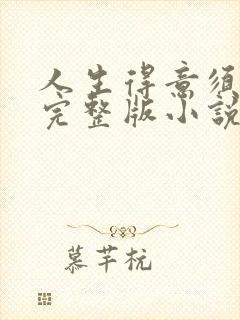 人生得意须
完整版小說
慕芊杭